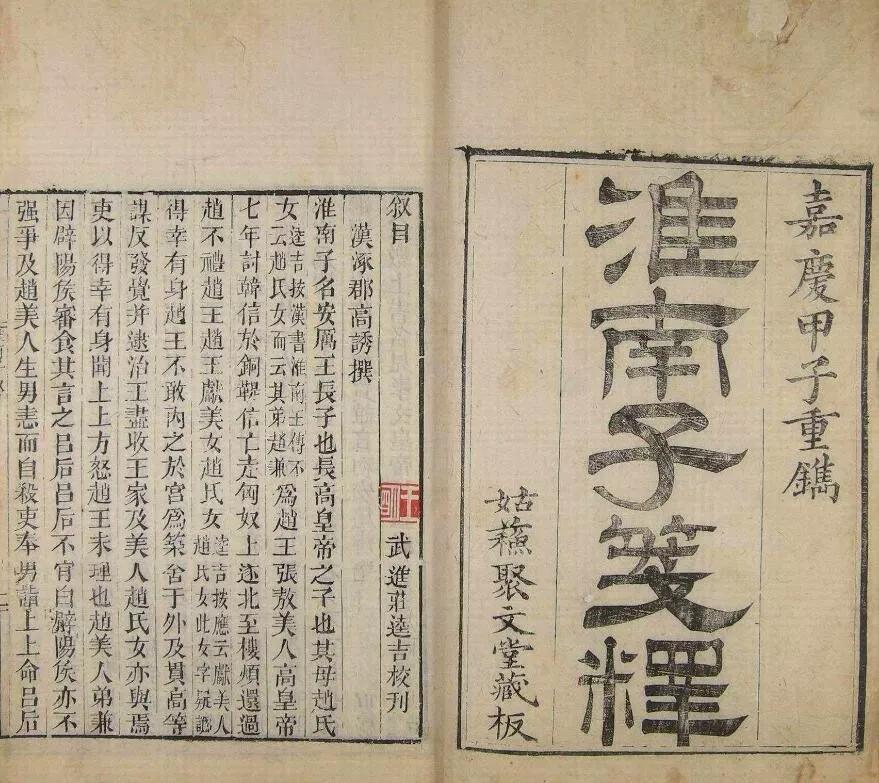 嘉慶甲子重鐫
淮南子箋釋
姑蘇聚文堂藏板
叙目
漢涿郡高誘撰
武進莊逵吉校刊
淮南子名安厲王長子也長高皇帝之子也其母趙氏
女逵吉按漢書淮南王傳不云趙氏女而云其弟趙兼爲趙王張敖美人高皇帝
七年討韓信於銅鞮信亡走匈奴上遂北至樓煩還過
趙不禮趙王趙王獻美女趙氏女逵吉按應云獻美人趙氏女此女字疑譌
得幸有身趙王不敢内之於宮爲築舍于外及貫高等
謀反發覺并逮治王盡收王家及美人趙氏女亦與焉
吏以得幸有身聞上上方怒趙王未理也趙美人弟兼
因辟陽矦審食其言之呂后呂后不肯白辟陽矦亦不
强爭及趙美人生男恚而自殺吏奉男詣上上命呂后